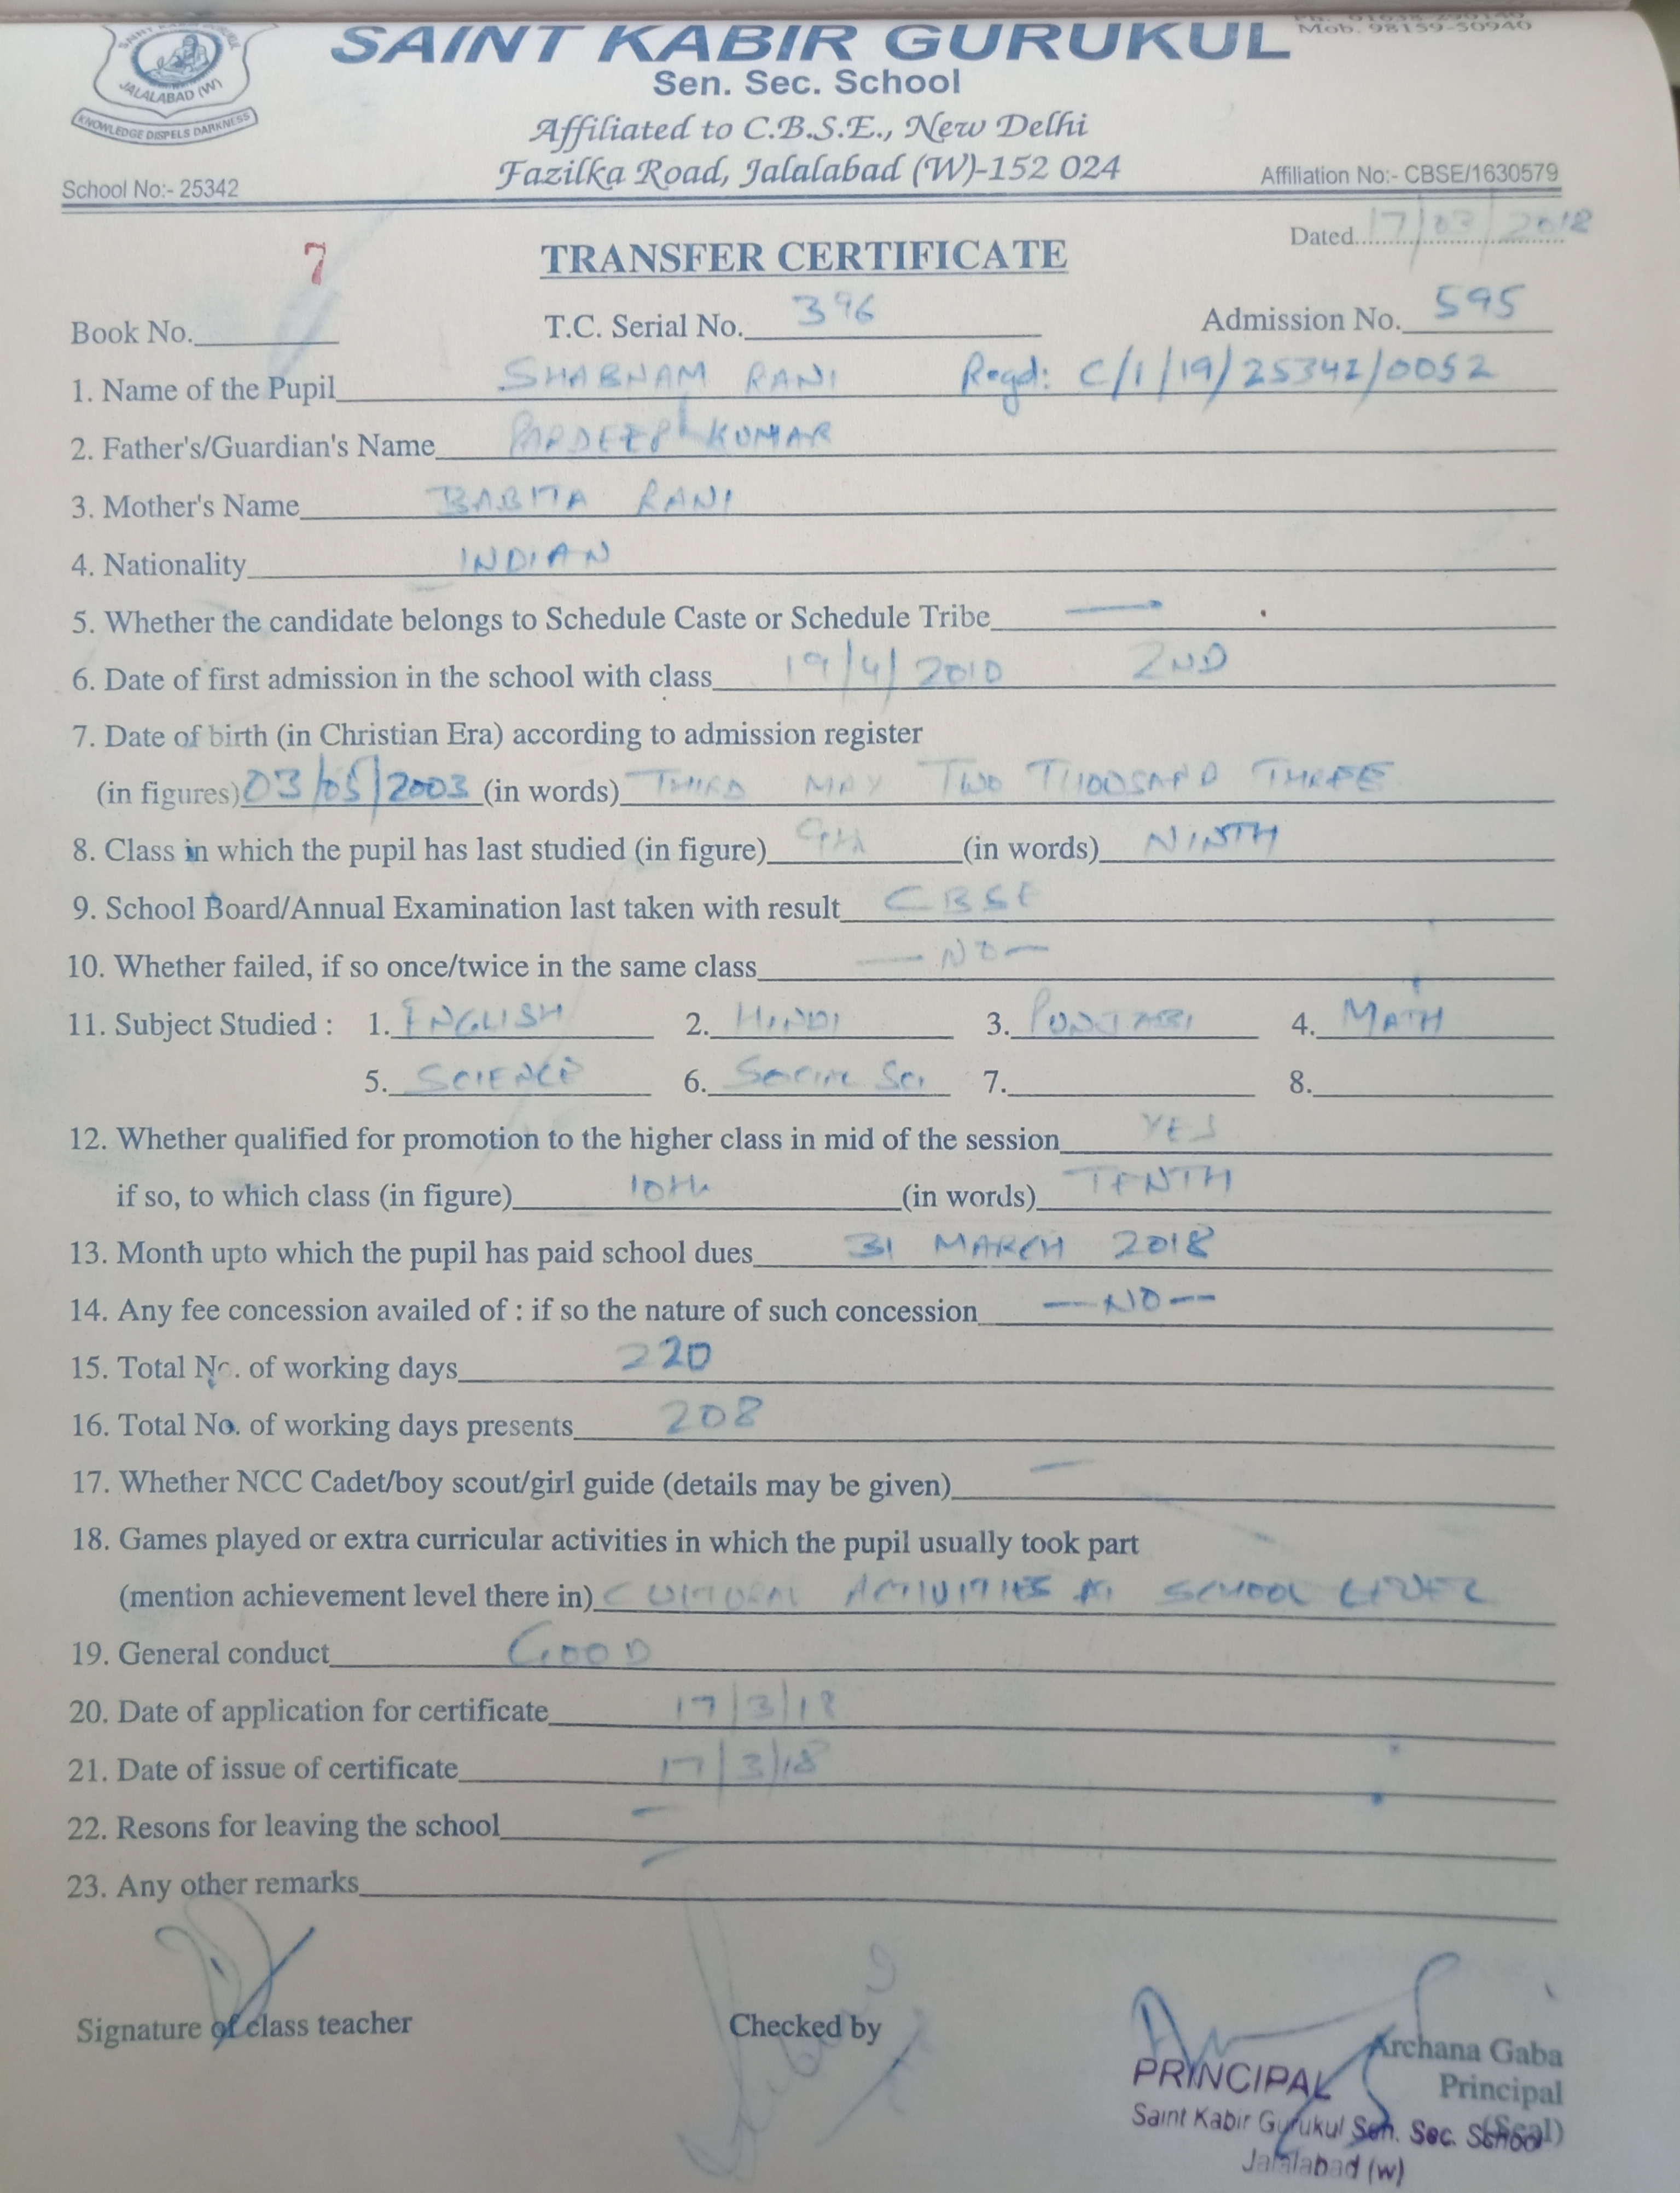 SAINT KABIR GURUKUL
Mob. 98159-50940
Sen. Sec. School
JALALABAD (W)
KNOWLEDGE DISPELS DARKNESS
Affiliated to C.B.S.E., New Delhi
Fazilka Road, Jalalabad (W)-152 024
School No:- 25342
Affiliation No:- CBSE/1630579
Dated 17/03/2018
7
TRANSFER CERTIFICATE
Book No.
T.C. Serial No. 396
Admission No. 595
1. Name of the Pupil SHABNAM RANI Regd: C/1/19/25342/0052
2. Father's/Guardian's Name PARDEEP KUMAR
3. Mother's Name BABITA RANI
4. Nationality INDIAN
5. Whether the candidate belongs to Schedule Caste or Schedule Tribe —
6. Date of first admission in the school with class 19/4/2010 2ND
7. Date of birth (in Christian Era) according to admission register
(in figures) 03/05/2003 (in words) THIRD MAY TWO THOUSAND THREE
8. Class in which the pupil has last studied (in figure) 9th (in words) NINTH
9. School Board/Annual Examination last taken with result CBSE
10. Whether failed, if so once/twice in the same class — NO —
11. Subject Studied : 1. ENGLISH 2. HINDI 3. PUNJABI 4. MATH
5. SCIENCE 6. SOCIAL SCI 7. 8.
12. Whether qualified for promotion to the higher class in mid of the session YES
if so, to which class (in figure) 10th (in words) TENTH
13. Month upto which the pupil has paid school dues 31 MARCH 2018
14. Any fee concession availed of : if so the nature of such concession —NO—
15. Total No. of working days 220
16. Total No. of working days presents 208
17. Whether NCC Cadet/boy scout/girl guide (details may be given) —
18. Games played or extra curricular activities in which the pupil usually took part
(mention achievement level there in) CULTURAL ACTIVITIES AT SCHOOL LEVEL
19. General conduct GOOD
20. Date of application for certificate 17/3/18
21. Date of issue of certificate 17/3/18
22. Resons for leaving the school —
23. Any other remarks —
Signature of class teacher
Checked by
Archana Gaba
Principal
(Seal)
PRINCIPAL
Saint Kabir Gurukul Sen. Sec. School
Jalalabad (w)